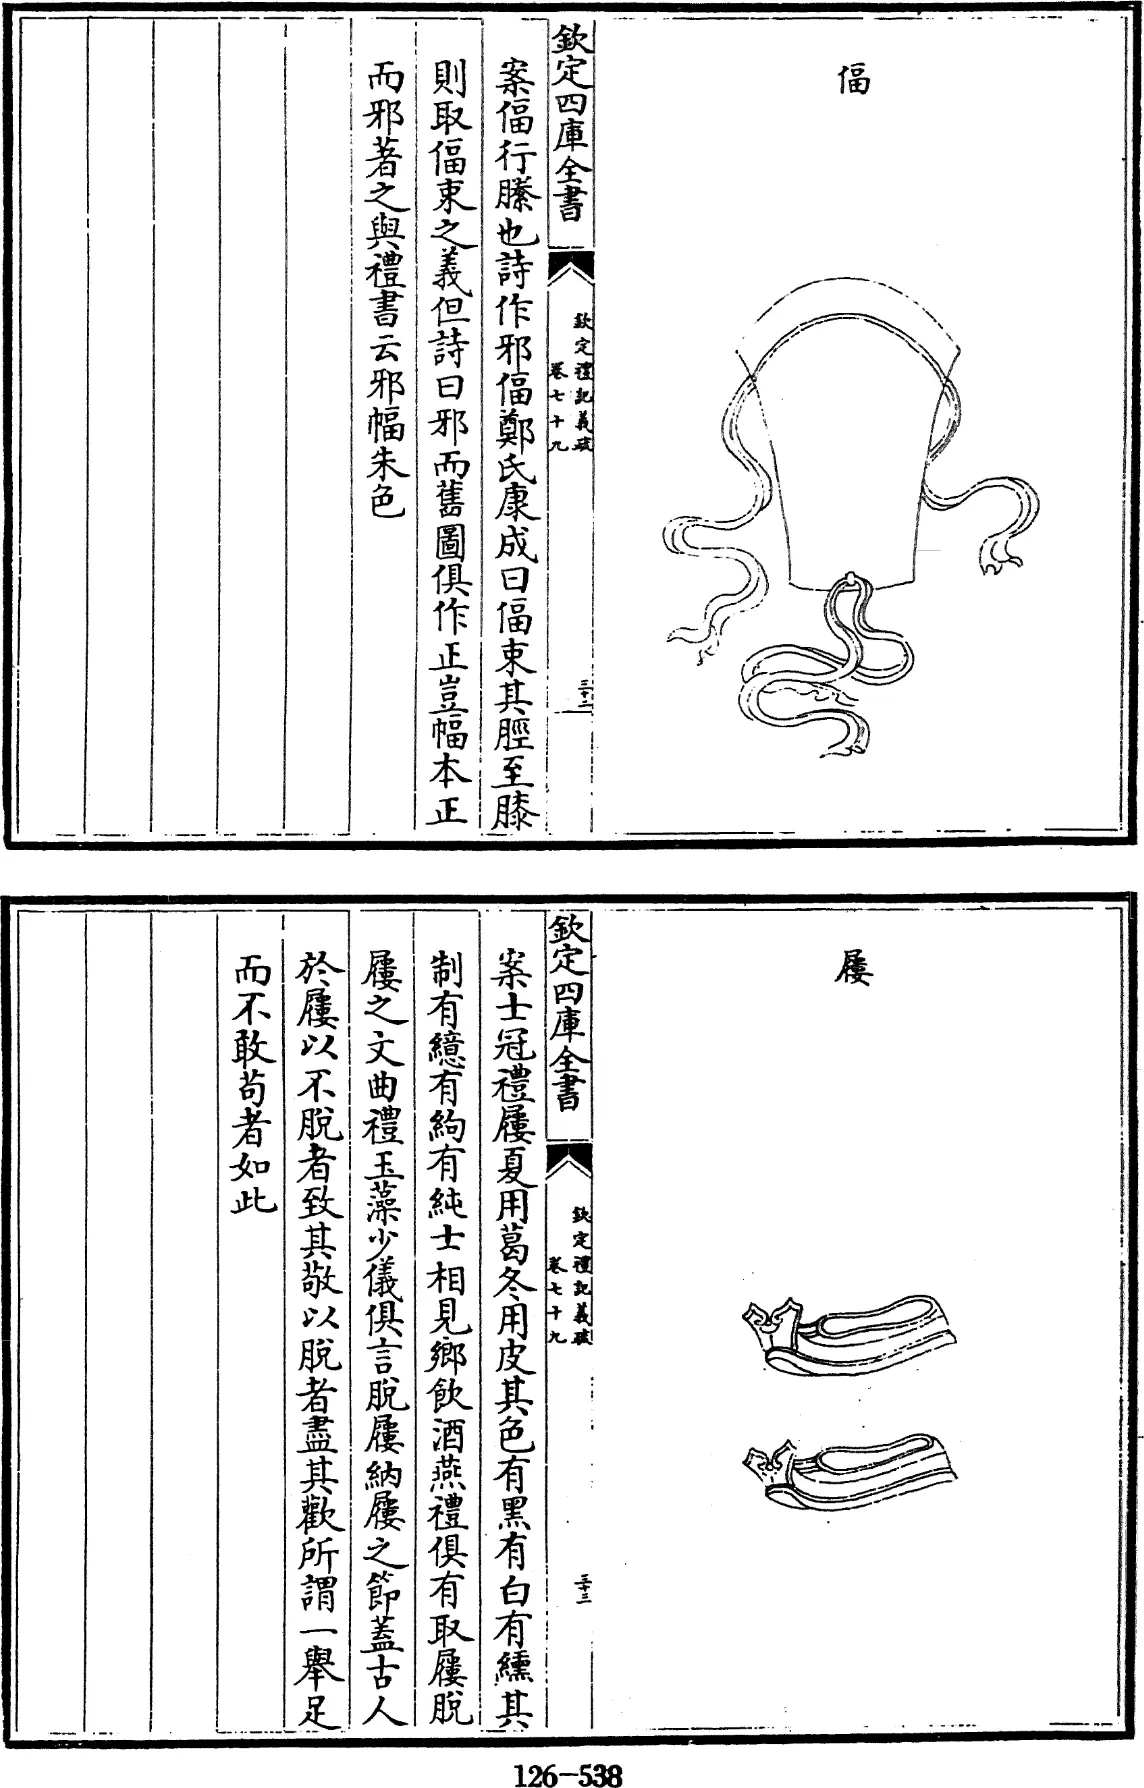 偪
欽定四庫全書
欽定禮記義疏
卷七十九
三十二
案偪行縢也詩作邪偪鄭氏康成曰偪束其脛至膝
則取偪束之義但詩曰邪而舊圖俱作正豈幅本正
而邪著之與禮書云邪幅朱色
屨
欽定四庫全書
欽定禮記義疏
卷七十九
三十三
案士冠禮屨夏用葛冬用皮其色有黑有白有纁其
制有繶有絇有純士相見鄉飲酒燕禮俱有取屨脫
屨之文曲禮玉藻少儀俱言脫屨納屨之節蓋古人
於屨以不脫者致其敬以脫者盡其歡所謂一舉足
而不敢苟者如此
126-538